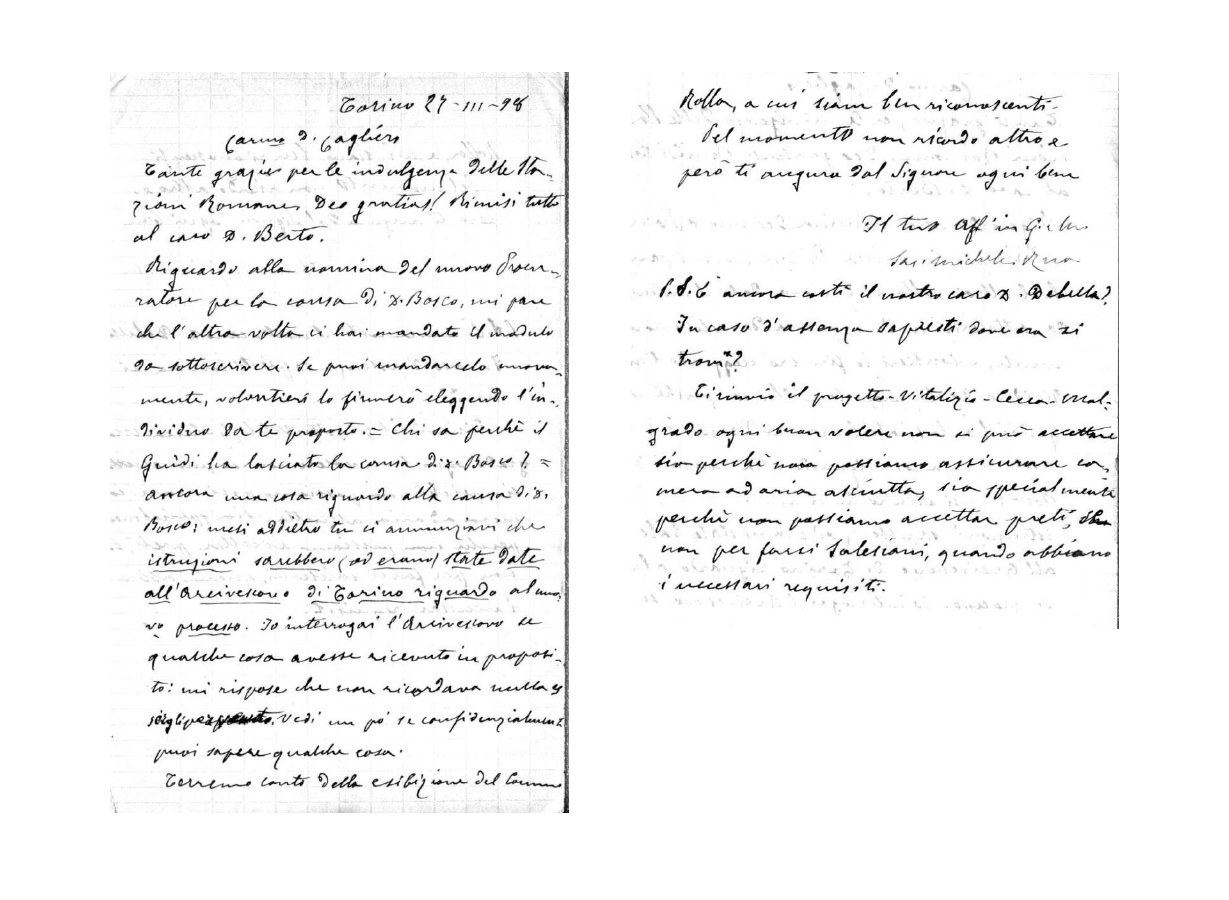 Torino 27-III-98
Carmo D. Cagliero
Tante grazie per le indulgenze delle Sta-
zioni Romane. Deo gratias! Rimisi tutto
al caro D. Berto.
Riguardo alla nomina del nuovo Procu-
ratore per la causa di D. Bosco, mi pare
che l'altra volta ci hai mandato il modulo
da sottoscrivere. Se puoi mandarcelo nuova-
mente, volontieri lo firmerò eleggendo l'in-
dividuo da te proposto. = Chi sa perchè il
Guidi ha lasciato la causa di D. Bosco? =
Ancora una cosa riguardo alla causa di D.
Bosco: mesi addietro tu ci annunziavi che
istruzioni sarebbero (od erano) state date
all'Arcivescovo di Torino riguardo al nuo-
vo processo. Io interrogai l'Arcivescovo se
qualche cosa avesse ricevuto in proposi-
to: mi rispose che non ricordava nulla
Vedi un pò se confidenzialmente
puoi sapere qualche cosa.
Terremo conto della esibizione del Comm
Rolla, a cui siam ben riconoscenti.
Pel momento non ricordo altro e
però ti auguro dal Signore ogni bene
Il tuo Aff in G. e M.
Sac. Michele Rua
P.S. È ancora costì il nostro caro D. Debella?
In caso d'assenza sapresti dove ora si
trovi?
Ti rinvio il progetto-Vitalizio-Cecca. Mal-
grado ogni buon volere non si può accettare
sia perchè non possiamo assicurare ca-
mera ad aria asciutta, sia specialmente
perchè non possiamo accettar preti,
non per farsi Salesiani, quando abbiano
i necessari requisiti.